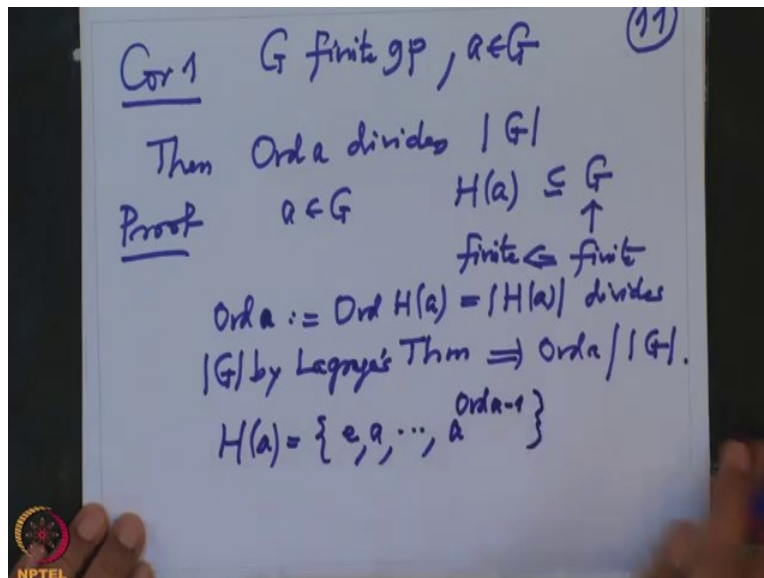 11
Cor 1 G finite gp, a ∈ G
Then Ord a divides |G|
Proof a ∈ G H(a) ⊆ G
↑
finite ⇐ finite
Ord a := Ord H(a) = |H(a)| divides
|G| by Lagrange's Thm ⇒ Ord a / |G|.
H(a) = { e, a, ..., a^{Ord a-1} }
NPTEL